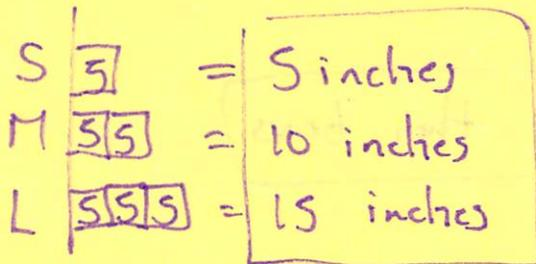 S 5 = 5 inches
M 5 5 = 10 inches
L 5 5 5 = 15 inches